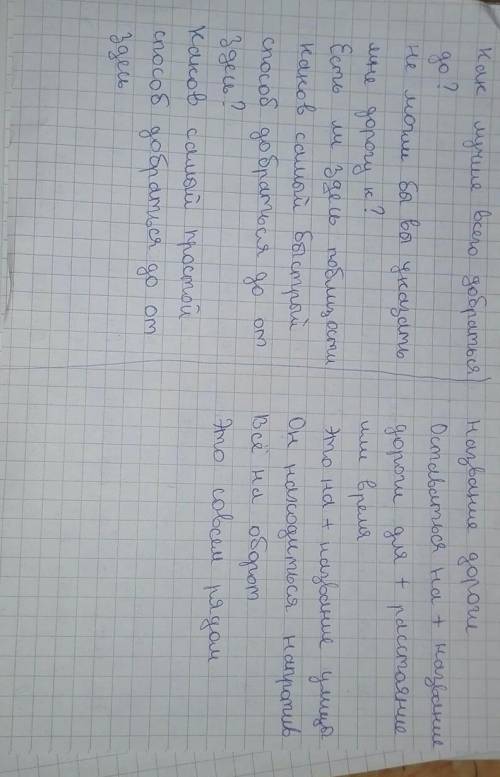 Как лучше всего добраться
до?
Не могли бы вы указать
мне дорогу к?
Есть ли здесь поблизасти
Каков самый быстрый
способ добраться до от
Здесь?
Каков самый простой
способ добраться до от
Здесь
Название дороги
Оставаться на + название
дороги для + расстояние
или время
Это на + название улицы
Он находиться напротив
Всё на оборот
Это совсем рядом